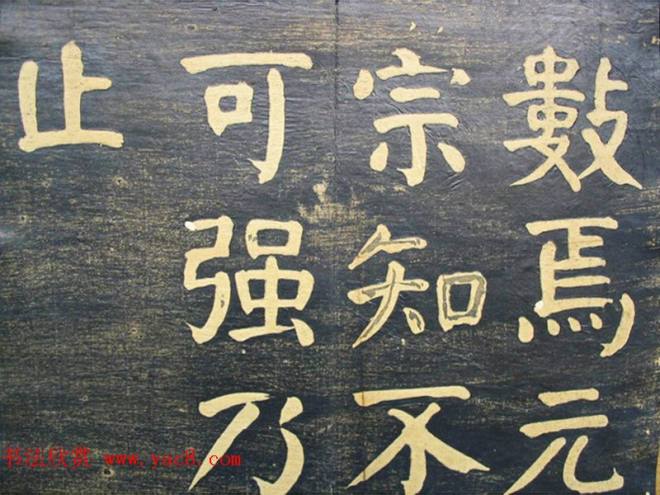 數焉元
宗知不
可强乃
止
书法欣赏 www.yac8.com